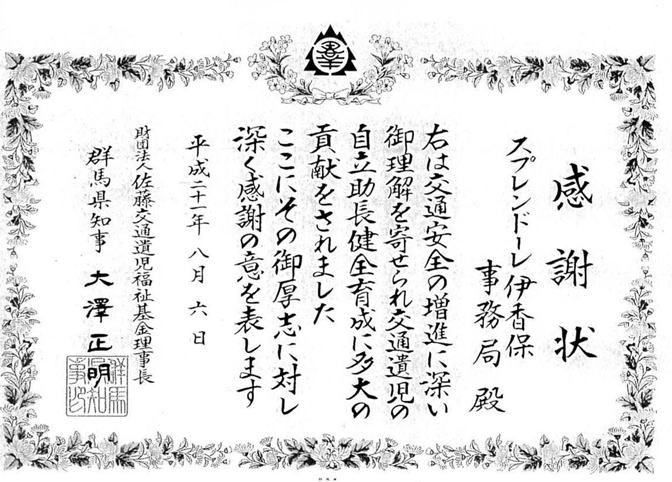 感謝状
スプレンドーレ伊香保
事務局 殿
右は交通安全の増進に深い
御理解を寄せられ交通遺児の
自立助長健全育成に多大の
貢献をされました
ここにその御厚志に対し
深く感謝の意を表します
平成二十一年八月六日
財団法人佐藤交通遺児福祉基金理事長
群馬県知事 大澤正明
群馬
県知
事印